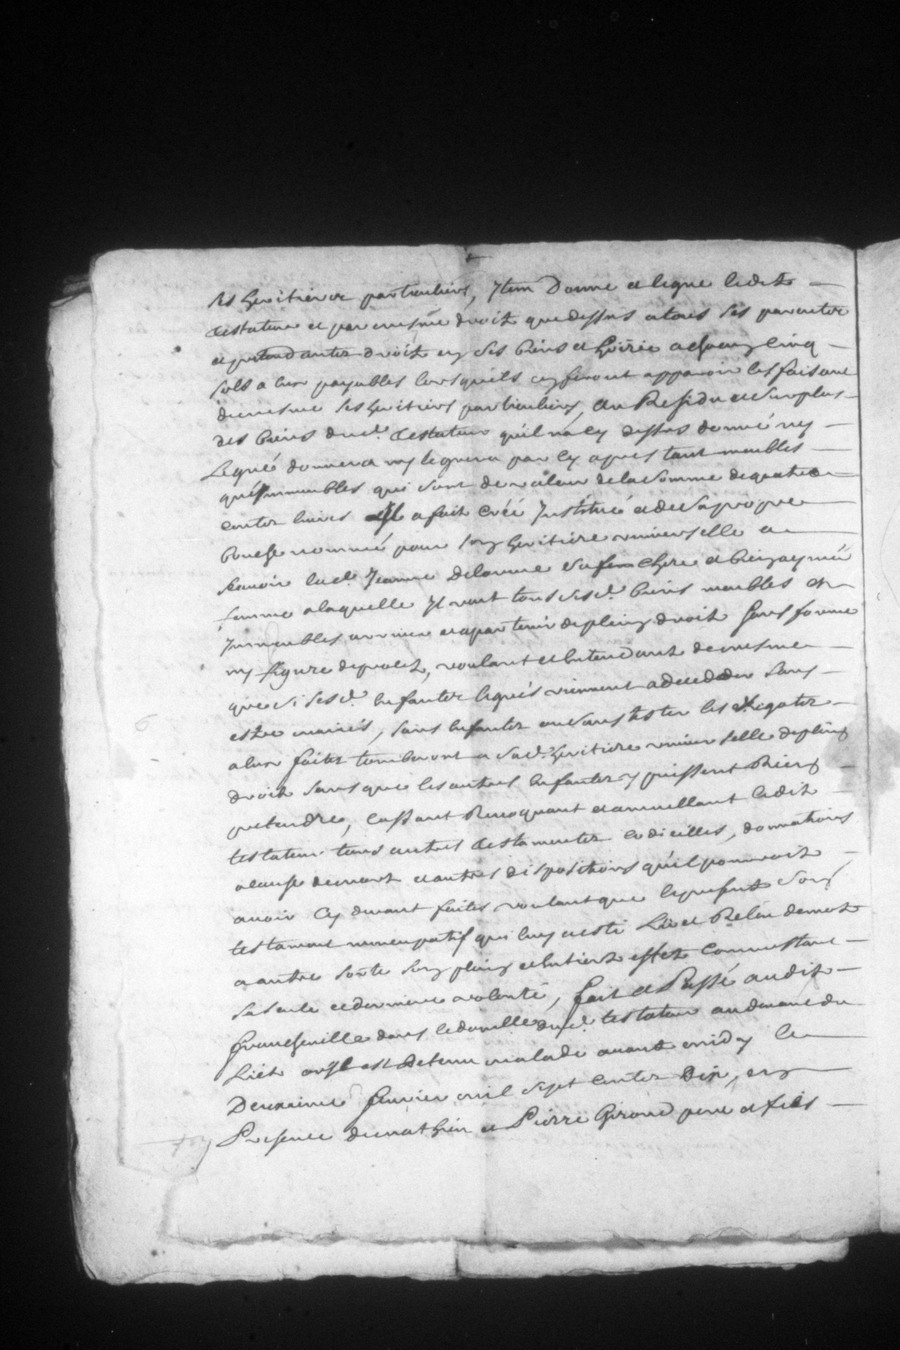 ses heritieres particuliers, Item donne et legue ledit
testateur et par mesme droit que dessus a tous ses parantz
et pretendantz droit en ses biens et hoirie a chacun cinq
solz a eux payables lorsquils en feront apparoir les faisant
de mesme ses heritiers particuliers, au Residu et surplus
des biens dud. testateur quil na cy dessus donné ny
legué donnera ny leguera par cy apres tant meubles
quimmeubles qui sont de valeur de la somme de quatre
centz livres Il a fait créé Institué et de sa propre
bouche nommé pour son heritiere universelle a
scavoir lad. Jeanne Delorme sa chere et bien aymée
femme a laquelle Il veut tous sesd. biens meubles et
Immeubles arriver et apartenir de plein droit sans forme
ny figure de procez, voulant et entendant de mesme
que si sesd. enfantz legués viennent a decedder sans
estre mariés, sans enfantz ou sans tester les legatz
a eux faitz tomberont a sad. heritiere universelle de plein
droit sans que les autres enfantz y puissent Rien
pretendre, Cassant Revoquant et annullant ledit
testateur tous autres testamentz codicilles, donnations
a cause de mort et autres dispositions quil pourroit
avoir cy devant faites voulant que le present son
testament nuncupatif qui luy a esté Leu et Releu de mot
a autre sorte son plein et entiert effet comme estant
sa seule et derniere volonté, fait et Passé audit
dans le domicille dud. testateur au devant du
Liet ou Il est detenu malade avant midy le
Deuxieme fevrier mil sept centz dix, en
Presence de mathieu et Pierre Giroud pere et fils